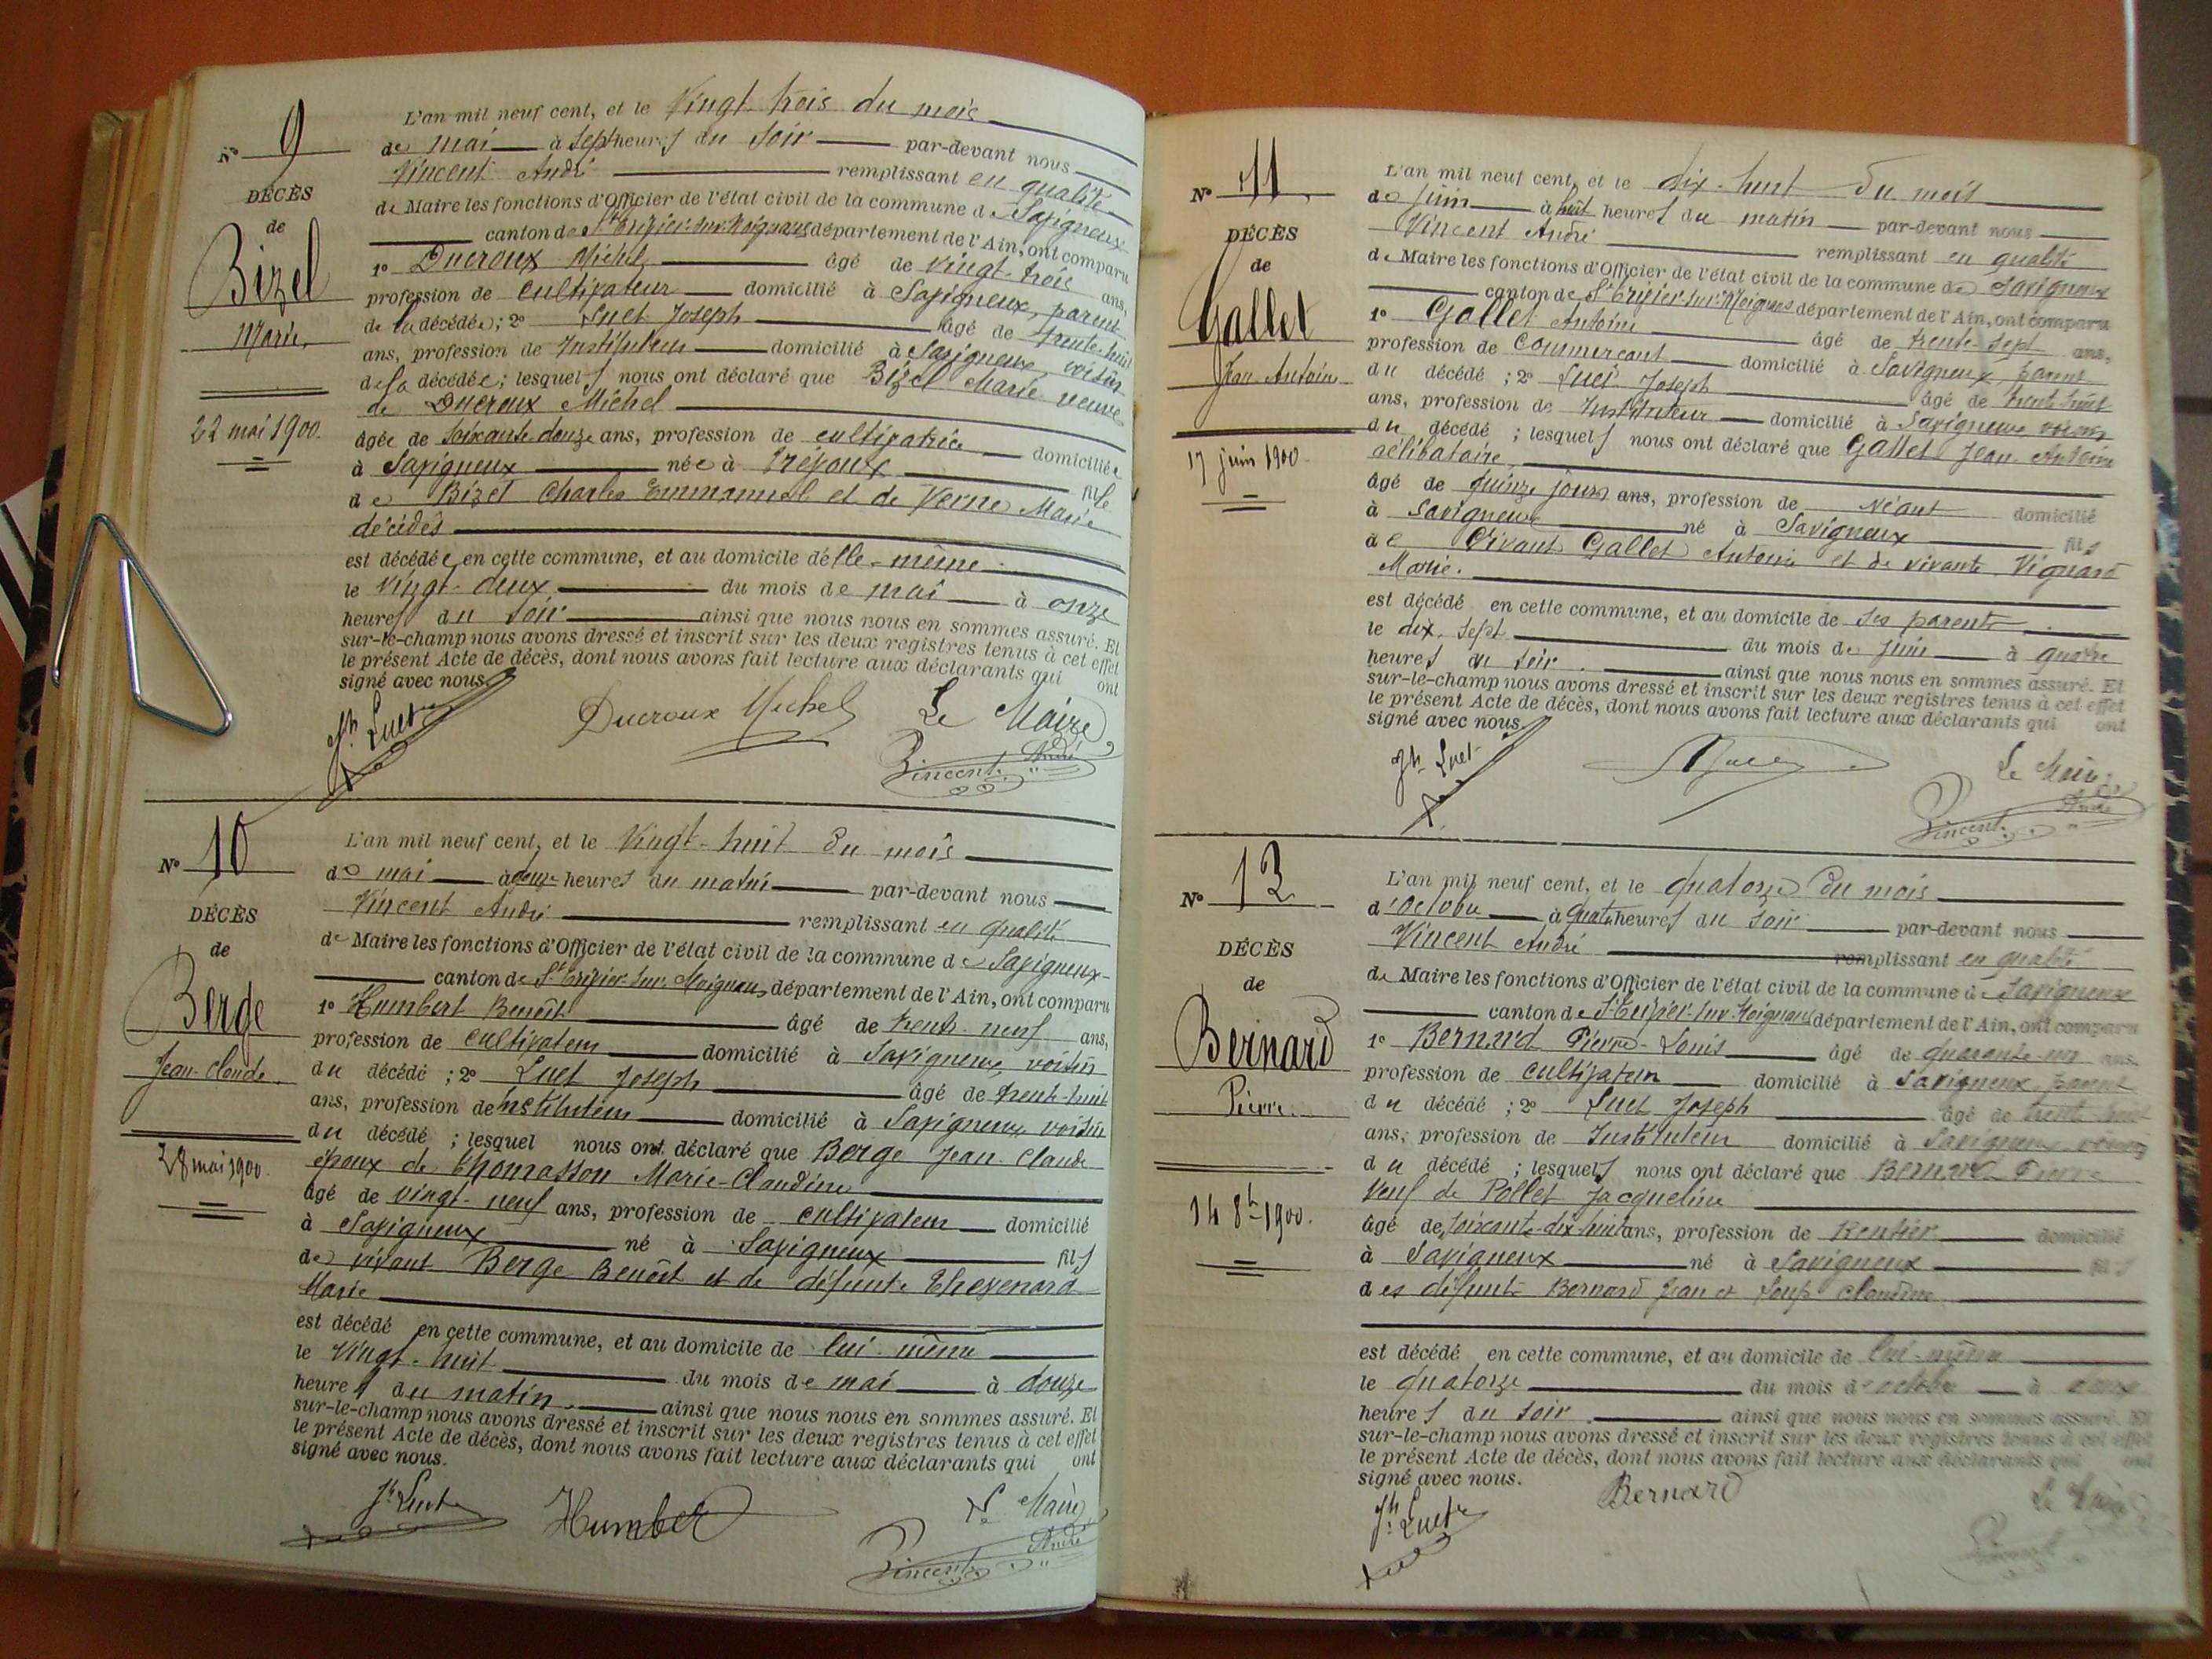 N° 9
DÉCÈS
de
Bizel
Marie
22 mai 1900.
L'an mil neuf cent, et le Vingt trois du mois
de mai à sept heures du soir par-devant nous
Vincent André remplissant en qualité
de Maire les fonctions d'Officier de l'état civil de la commune de Savigneux
canton de St Trivier-sur-Moignans département de l'Ain, ont comparu
1° Ducroux Michel âgé de vingt-trois ans,
profession de cultivateur domicilié à Savigneux, parent
de la décédée; 2° Luet Joseph âgé de trente-huit
ans, profession de Instituteur domicilié à Savigneux, voisin
de la décédée; lesquels nous ont déclaré que Bizel Marie veuve
de Ducroux Michel
âgée de soixante-douze ans, profession de cultivatrice domiciliée
à Savigneux née à Trévoux fille
de Bizel Charles Emmanuel et de Verne Marie
décédés
est décédée en cette commune, et au domicile d'elle-même
le Vingt-deux du mois de mai à onze
heures du soir ainsi que nous nous en sommes assuré. Et
sur-le-champ nous avons dressé et inscrit sur les deux registres tenus à cet effet
le présent Acte de décès, dont nous avons fait lecture aux déclarants qui ont
signé avec nous.
Jh Luet Ducroux Michel Le Maire
Vincent André
N° 10
DÉCÈS
de
Berge
Jean-Claude
28 mai 1900.
L'an mil neuf cent, et le Vingt-huit du mois
de mai à heures du matin par-devant nous
Vincent André remplissant en qualité
de Maire les fonctions d'Officier de l'état civil de la commune de Savigneux
canton de St Trivier-sur-Moignans département de l'Ain, ont comparu
1° Humbert Benoît âgé de trente-neuf ans,
profession de cultivateur domicilié à Savigneux, voisin
du décédé; 2° Luet Joseph âgé de trente-huit
ans, profession de Instituteur domicilié à Savigneux voisin
du décédé; lesquel nous ont déclaré que Berge Jean-Claude
époux de Thomasson Marie-Claudine
âgé de vingt-neuf ans, profession de cultivateur domicilié
à Savigneux né à Savigneux fils
de vivant Berge Benoît et de défunte Thevenard
Marie
est décédé en cette commune, et au domicile de lui-même
le Vingt-huit du mois de mai à douze
heures du matin. ainsi que nous nous en sommes assuré. Et
sur-le-champ nous avons dressé et inscrit sur les deux registres tenus à cet effet
le présent Acte de décès, dont nous avons fait lecture aux déclarants qui ont
signé avec nous.
Jh Luet Humbert Le Maire
Vincent André
N° 11
DÉCÈS
de
Gallet
Jean-Antoine
17 juin 1900
L'an mil neuf cent, et le dix-huit du mois
de juin à huit heures du matin par-devant nous
Vincent André remplissant en qualité
de Maire les fonctions d'Officier de l'état civil de la commune de Savigneux
canton de St Trivier-sur-Moignans département de l'Ain, ont comparu
1° Gallet Antoine âgé de trente-sept ans,
profession de commerçant domicilié à Savigneux, parent
du décédé; 2° Luet Joseph âgé de trente-huit
ans, profession de Instituteur domicilié à Savigneux voisin
du décédé; lesquels nous ont déclaré que Gallet Jean-Antoine
célibataire
âgé de quinze jours ans, profession de Néant domicilié
à Savigneux né à Savigneux fils
de vivant Gallet Antoine et de vivante Viguard
Marie.
est décédé en cette commune, et au domicile de ses parents
le dix-sept du mois de juin à quatre
heures du soir. ainsi que nous nous en sommes assuré. Et
sur-le-champ nous avons dressé et inscrit sur les deux registres tenus à cet effet
le présent Acte de décès, dont nous avons fait lecture aux déclarants qui ont
signé avec nous.
Jh Luet Le Maire
Vincent André
N° 12
DÉCÈS
de
Bernard
Pierre.
14 8b 1900.
L'an mil neuf cent, et le quatorze du mois
d'octobre à quatre heures du soir par-devant nous
Vincent André remplissant en qualité
de Maire les fonctions d'Officier de l'état civil de la commune de Savigneux
canton de St Trivier-sur-Moignans département de l'Ain, ont comparu
1° Bernard Pierre-Louis âgé de quarante-un ans
profession de cultivateur domicilié à Savigneux, parent
du décédé; 2° Luet Joseph âgé de trente-huit
ans, profession de Instituteur domicilié à Savigneux, voisin
du décédé; lesquels nous ont déclaré que Bernard Pierre
Veuf de Pollet Jacqueline
âgé de soixante-dix-huit ans, profession de Rentier domicilié
à Savigneux né à Savigneux fils
des défunts Bernard Jean et Loup Claudine
est décédé en cette commune, et au domicile de lui-même
le quatorze du mois d'octobre à
heures du soir. ainsi que nous nous en sommes assuré. Et
sur-le-champ nous avons dressé et inscrit sur les deux registres tenus à cet effet
le présent Acte de décès, dont nous avons fait lecture aux déclarants qui ont
signé avec nous.
Jh Luet Bernard Le Maire
Vincent